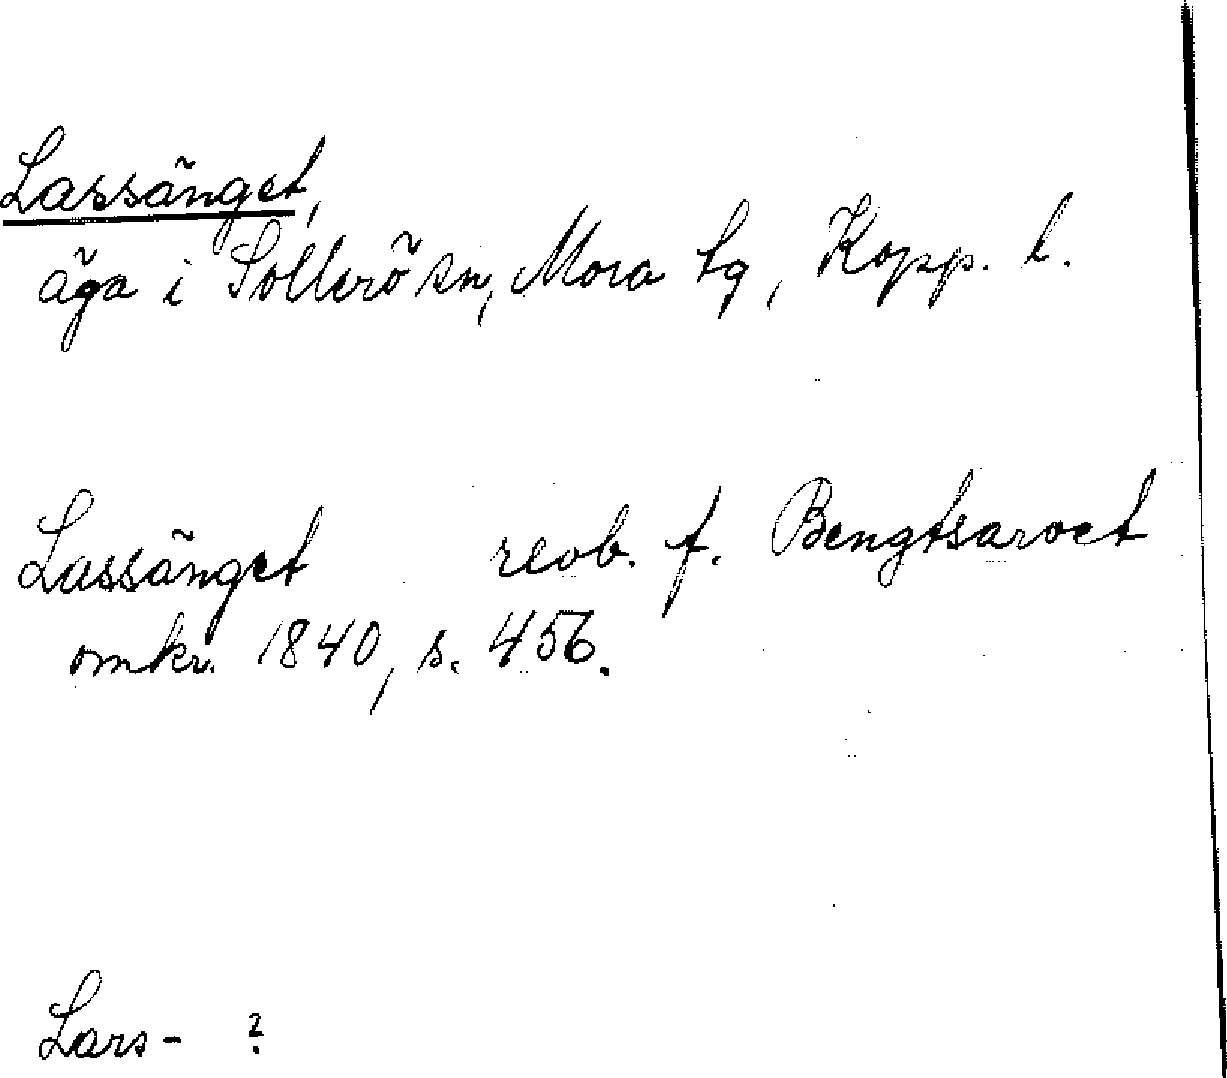 Lassänget,
äga i Sollerö sn, Mora tg, Kopp. l.
Lassänget revb. f. Bengtsarvet
omkr. 1840, s. 456.
Lars- ?